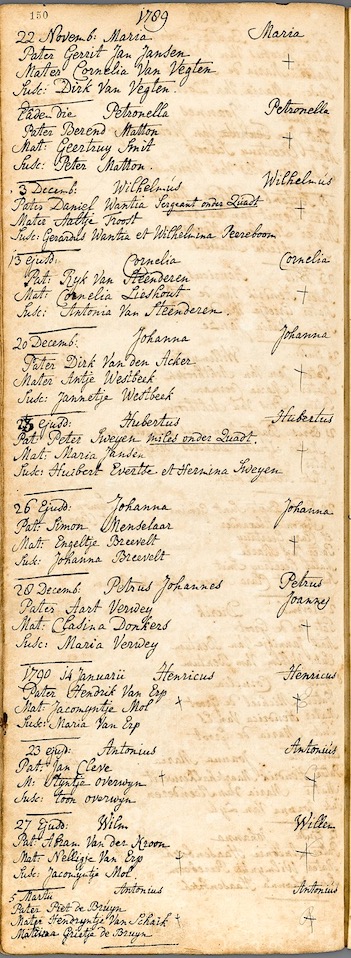 150
1789
22 Novemb: Maria Maria
Pater Gerrit Jan Jansen
Mater Cornelia Van Vegten
Susc: Dirk Van Vegten
Eadem die Petronella Petronella
Pater Berend Matton
Mat: Geertruy Smit
Susc: Peter Matton
3 Decemb: Wilhelmus Wilhelmus
Pater Daniel Wantia Sergeant onder Quadt
Mater Aaltje Troost
Susc: Gerardus Wantia et Wilhelmina Peereboom
13 ejusd: Cornelia Cornelia
Pat: Ryk Van Steenderen
Mat: Cornelia Lieshout
Susc: Antonia Van Steenderen.
20 Decemb: Johanna Johanna
Pater Dirk Van den Acker
Mater Antje Westbeek
Susc: Jannetje Westbeek
ejusd: Hubertus Hubertus
Pat: Peter Sweyen miles onder Quadt.
Mat: Maria Jansen
Susc: Huibert Evertse et Hermina Sweyen
26 Ejusd: Johanna Johanna
Pat: Simon Menselaar
Mat: Engeltje Breevelt
Susc: Johanna Breevelt
28 Decemb: Petrus Johannes Petrus
Joannes
Pater Aart Verwey
Mat: Clasina Donkers
Susc: Maria Verwey
1790 14 Januarii Henricus Henricus
Pater Hendrik Van Erp
Mat: Jacomyntje Mol
Susc: Maria Van Erp
23 ejusd: Antonius Antonius
Pat: Jan Cleve
M: Styntje overwyn
Susc: toon overwyn
27 Ejusd: Wilm Willem
Pat: Abram Van der Kroon
Mat: Nelligje Van Erp
Susc: Jacomyntje Mol
5 Martii Antonius Antonius
Pater Piet de Bruyn
Mater Hendryntje Van Schaik
Grietje de Bruyn